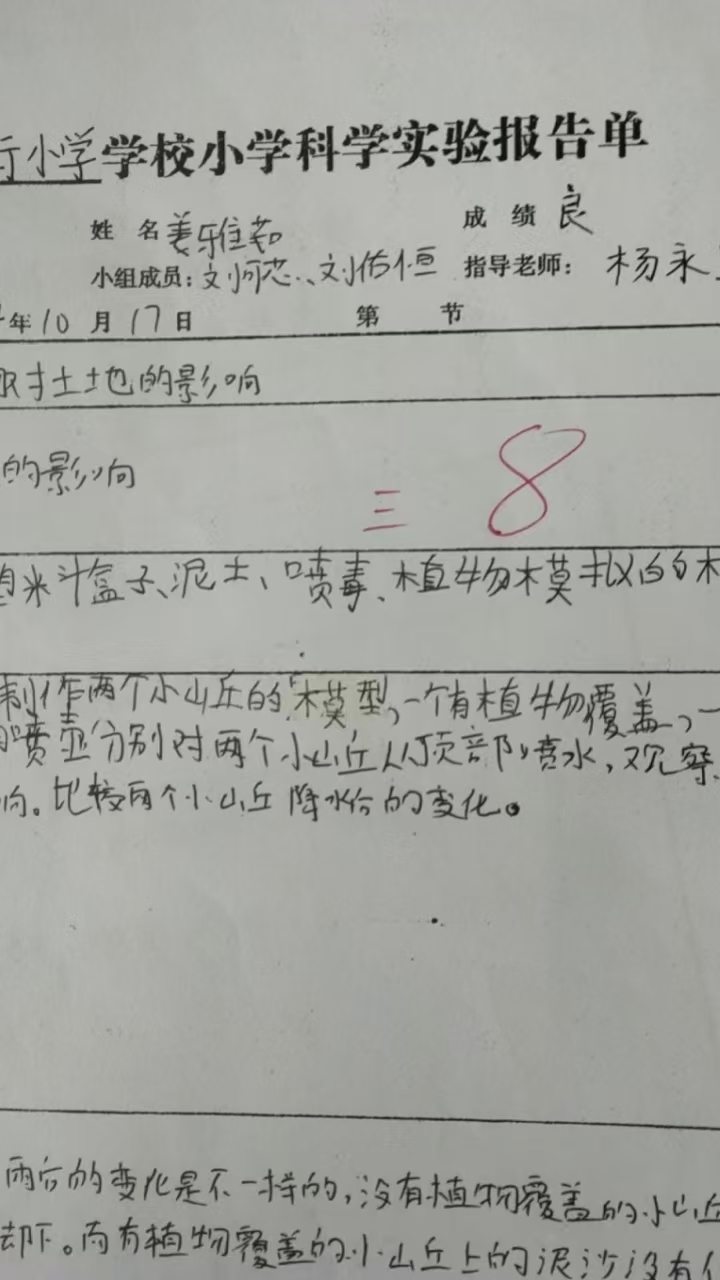 行小学学校小学科学实验报告单
姓 名 姜雅茹 成 绩 良
小组成员：刘佑恒 指导老师：杨永
年10月17日 第 节
对土地的影响
的影响
三 8
料盒子、泥土、喷壶、植物模拟的
制作两个小山丘的模型，一个有植物覆盖，一
喷壶分别对两个小山丘从顶部喷水，观察
响。比较两个小山丘降水后的变化。
雨后的变化是不一样的，没有植物覆盖的小山丘
却下。而有植物覆盖的小山丘上的泥沙没有